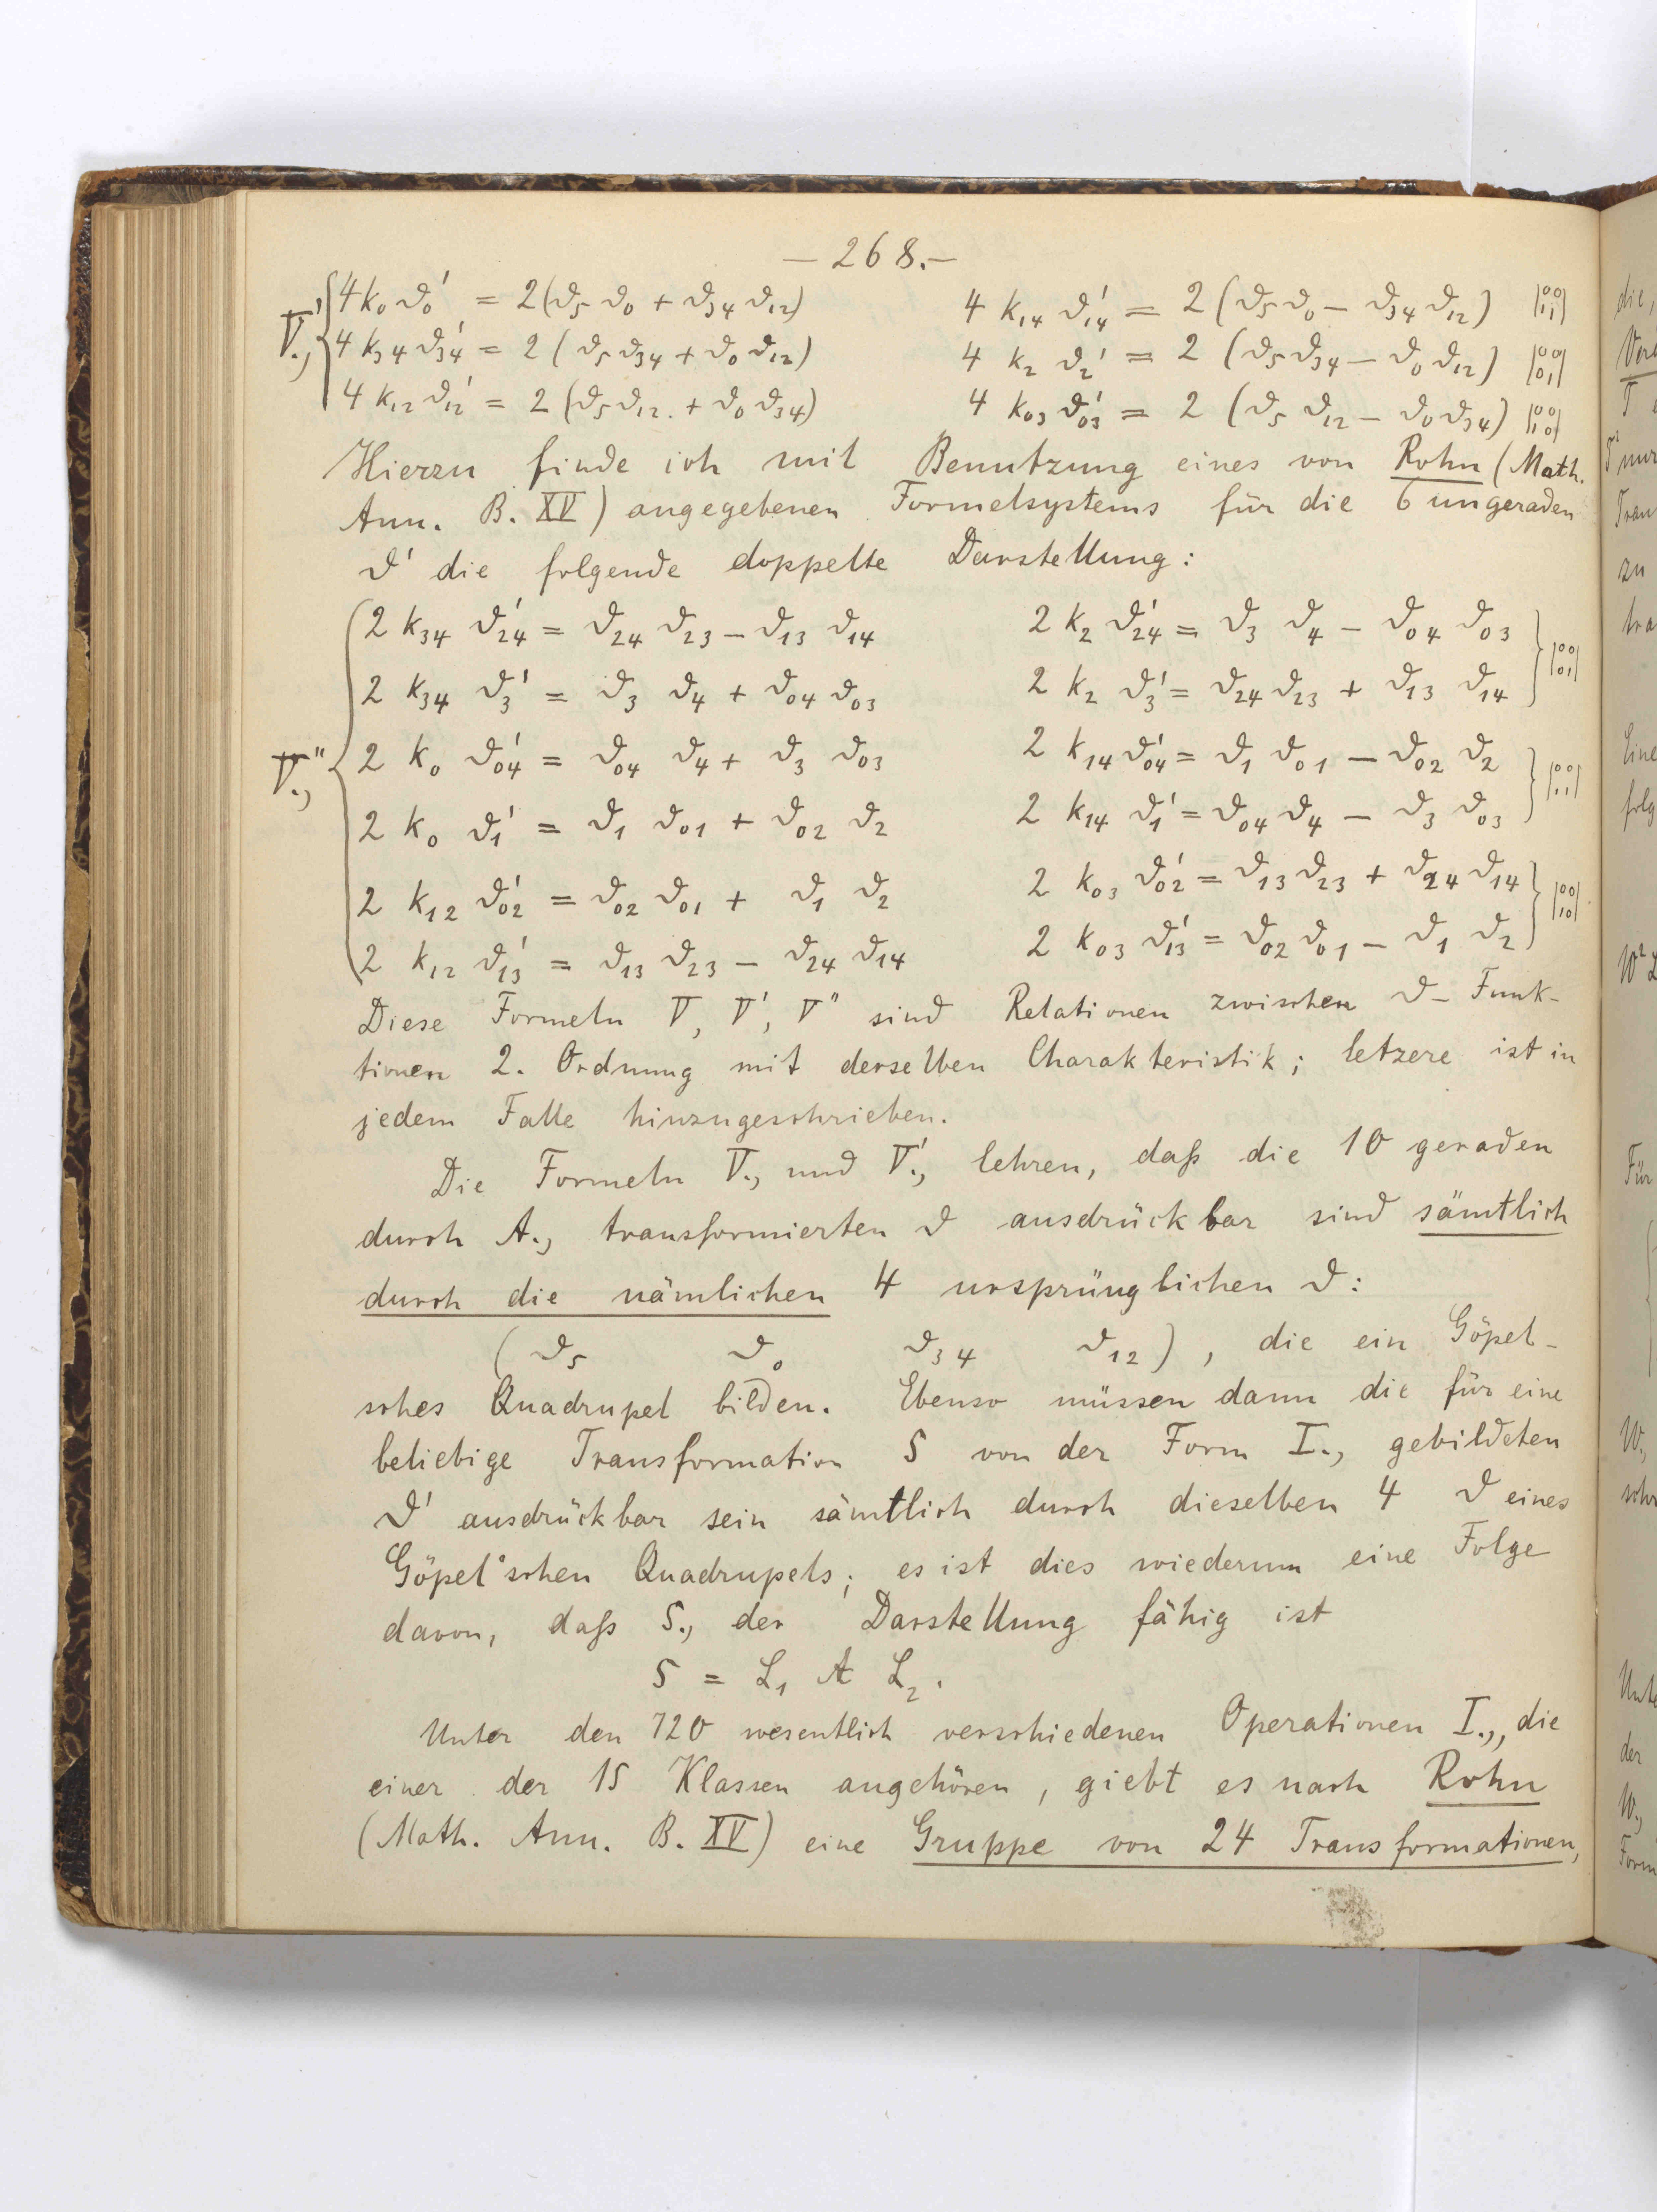 — 268. —
V.,' { 4 k₀ ϑ₀' = 2(ϑ₅ ϑ₀ + ϑ₃₄ ϑ₁₂) 4 k₁₄ ϑ₁₄' = 2 (ϑ₅ ϑ₀ – ϑ₃₄ ϑ₁₂) |00 11|
4 k₃₄ ϑ₃₄' = 2 (ϑ₅ ϑ₃₄ + ϑ₀ ϑ₁₂) 4 k₂ ϑ₂' = 2 (ϑ₅ ϑ₃₄ – ϑ₀ ϑ₁₂) |00 01|
4 k₁₂ ϑ₁₂' = 2 (ϑ₅ ϑ₁₂. + ϑ₀ ϑ₃₄) 4 k₀₃ ϑ₀₃' = 2 (ϑ₅ ϑ₁₂ – ϑ₀ ϑ₃₄) |00 10|
Hierzu finde ich mit Benutzung eines von Rohn (Math.
Ann. B. XV) angegebenen Formelsystems für die 6 ungeraden
ϑ' die folgende doppelte Darstellung:
2 k₃₄ ϑ₂₄' = ϑ₂₄ ϑ₂₃ – ϑ₁₃ ϑ₁₄ 2 k₂ ϑ₂₄' = ϑ₃ ϑ₄ – ϑ₀₄ ϑ₀₃
2 k₃₄ ϑ₃' = ϑ₃ ϑ₄ + ϑ₀₄ ϑ₀₃ 2 k₂ ϑ₃' = ϑ₂₄ ϑ₂₃ + ϑ₁₃ ϑ₁₄ } |00 01|
V.," { 2 k₀ ϑ₀₄' = ϑ₀₄ ϑ₄ + ϑ₃ ϑ₀₃ 2 k₁₄ ϑ₀₄' = ϑ₁ ϑ₀₁ – ϑ₀₂ ϑ₂
2 k₀ ϑ₁' = ϑ₁ ϑ₀₁ + ϑ₀₂ ϑ₂ 2 k₁₄ ϑ₁' = ϑ₀₄ ϑ₄ – ϑ₃ ϑ₀₃ } |00 11|
2 k₁₂ ϑ₀₂' = ϑ₀₂ ϑ₀₁ + ϑ₁ ϑ₂ 2 k₀₃ ϑ₀₂' = ϑ₁₃ ϑ₂₃ + ϑ₂₄ ϑ₁₄
2 k₁₂ ϑ₁₃' = ϑ₁₃ ϑ₂₃ – ϑ₂₄ ϑ₁₄ 2 k₀₃ ϑ₁₃' = ϑ₀₂ ϑ₀₁ – ϑ₁ ϑ₂ } |00 10|
Diese Formeln V, V', V" sind Relationen zwischen ϑ – Funk-
tionen 2. Ordnung mit derselben Charakteristik; letzere ist in
jedem Falle hinzugeschrieben.
Die Formeln V., und V.,' lehren, daß die 10 geraden
durch A., transformierten ϑ ausdrückbar sind sämtlich
durch die nämlichen 4 ursprünglichen ϑ:
(ϑ₅ ϑ₀ ϑ₃₄ ϑ₁₂), die ein Göpel-
sches Quadrupel bilden. Ebenso müssen dann die für eine
beliebige Transformation S von der Form I., gebildeten
ϑ' ausdrückbar sein sämtlich durch dieselben 4 ϑ eines
Göpel'schen Quadrupels; es ist dies wiederum eine Folge
davon, daß S., der Darstellung fähig ist
S = L₁ A L₂.
Unter den 720 wesentlich verschiedenen Operationen I.,, die
einer der 15 Klassen angehören, giebt es nach Rohn
(Math. Ann. B. XV) eine Gruppe von 24 Transformationen,